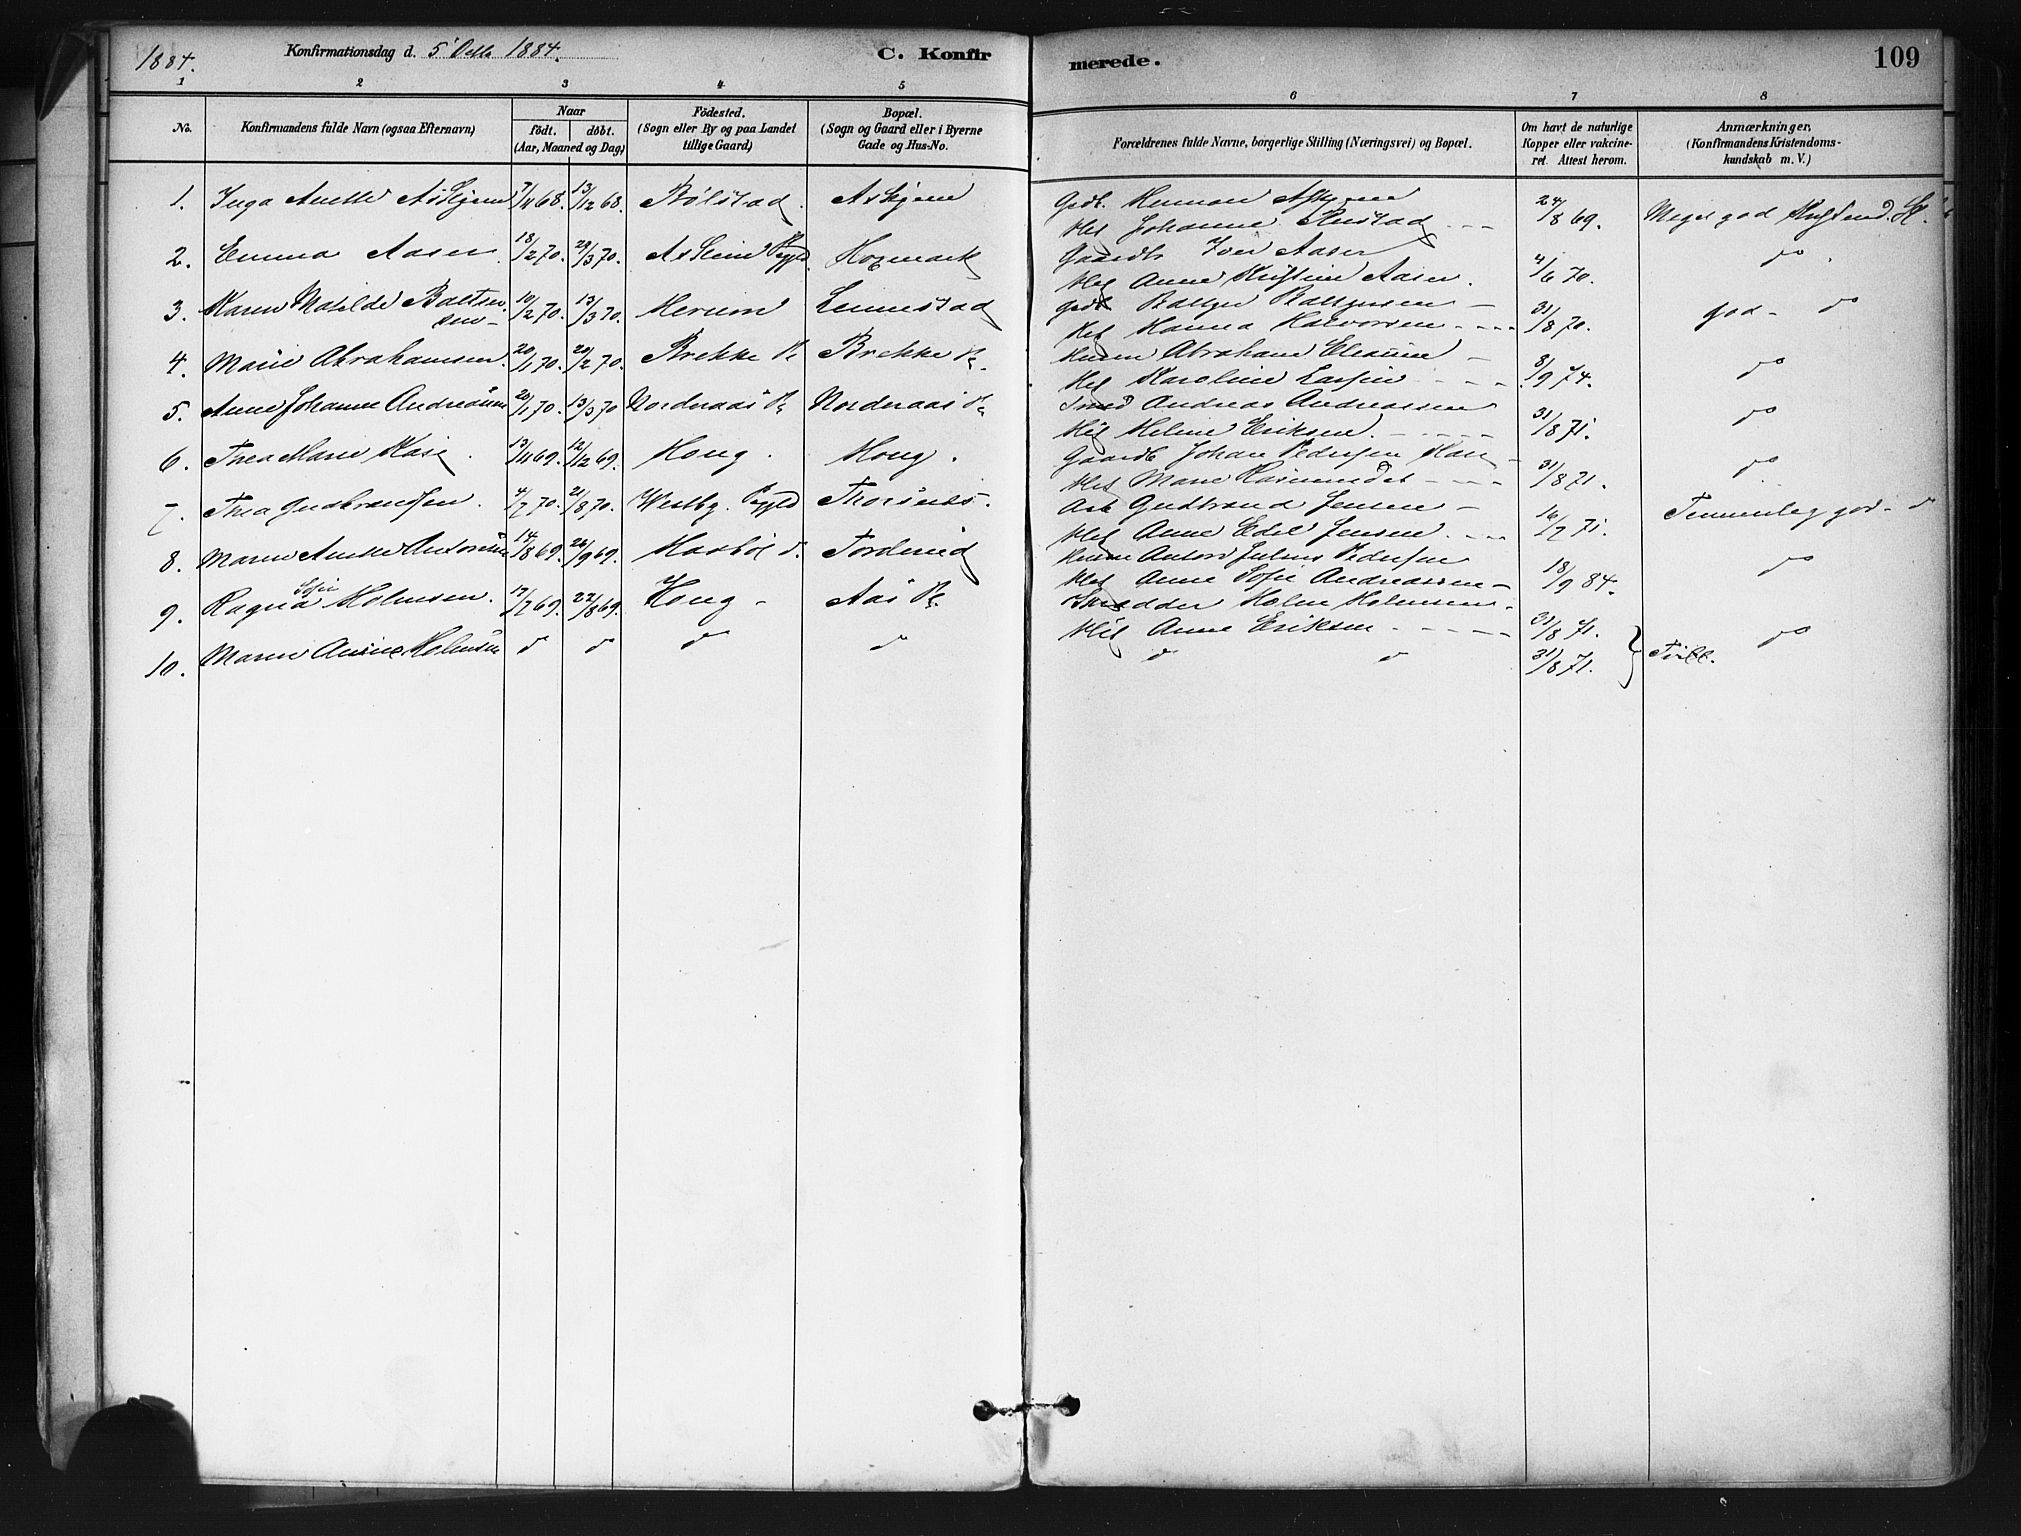 1884. Konfirmationsdag d. 5' Octb. 1884. C. Konfir merede. 109
1 2 3 4 5 6 7 8
No. Konfirmandens fulde Navn (ogsaa Efternavn) Naar født. døbt. (Aar, Maaned og Dag) Födested. (Sogn eller By og paa Landet tillige Gaard) Bopæl. (Sogn og Gaard eller i Byerne Gade og Hus-No. Forældrenes fulde Navne, borgerlige Stilling (Næringsvei) og Bopæl. Om havt de naturlige Kopper eller vakcine- ret. Attest herom. Anmærkninger, (Konfirmandens Kristendoms- kundskab m. V.)
1. Inga Anette Askjem 7/11 68. 13/12 68. Bölstad. Askjem Grdb. Herman Askjem
Hst Johanne Rustad 24/8 69. Meget god Kristend.
2. Emma Aasen 18/2 70. 29/3 70. Askeim Pgld Hogmark Gaardb Iver Aasen
Hst Anne Kristine Aasen. 4/6 70. do.
3. Karen Matilde Baltser sen 10/2 70. 13/3 70. Herum Linnestad Grdb Baltzer Baltzersen
Hst Hanna Halvorsen 31/8 70. god do
4. Marie Abrahamsen. 20/1 70. 20/2 70. Brekke Pl Brekke Pl. Husm Abraham
Hst Karoline Larsen 8/9 74. do
5. Anne Johanne Andreasen 20/1 70. 13/3 70 Norderaas Pl Norderaas Pl Smed Andreas Andreassen
Hst Helene Eriksen. 31/8 71. do
6. Thea Marie Kase. 13/11 69. 12/12 69. Houg. Houg. Gaardb Johan Pedersen Kase
Hst Maren Rasmusdat 31/8 71. do
7. Thea Gudbrandsen. 4/7 70. 21/8 70. Westby Pgld Arb Gudbrand Jensen
Hst Anne Edel Jensen 16/7 71. Temmelig god do
8. Maren Anette Antonsen 14/8 69. 26/9 69. Haabøl Husm Anton Julius Pedersen
Hst Anne Sofie Andreassen 18/9 84. do
9. Ragna Sofie Holmsen. 17/7 69. 22/8 69. Houg Aas Pl. Skrædder Holm Holmsen
Hst Anne Eriksen 31/8 71. do
10. Maren Holmsen do do do do do do 31/8 71. Tvill.